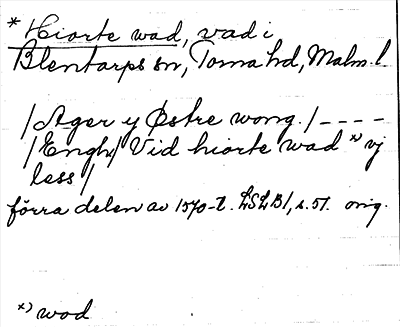 * Hiorte wad, vad i
Blentarps sn, Torna hd, Malm. l.
/Ager y Østre wong./----
/Engh/ Vid hiorte wad x) vj
less/
förra delen av 1570-t. LSLB1, s. 51. orig.
x) wod